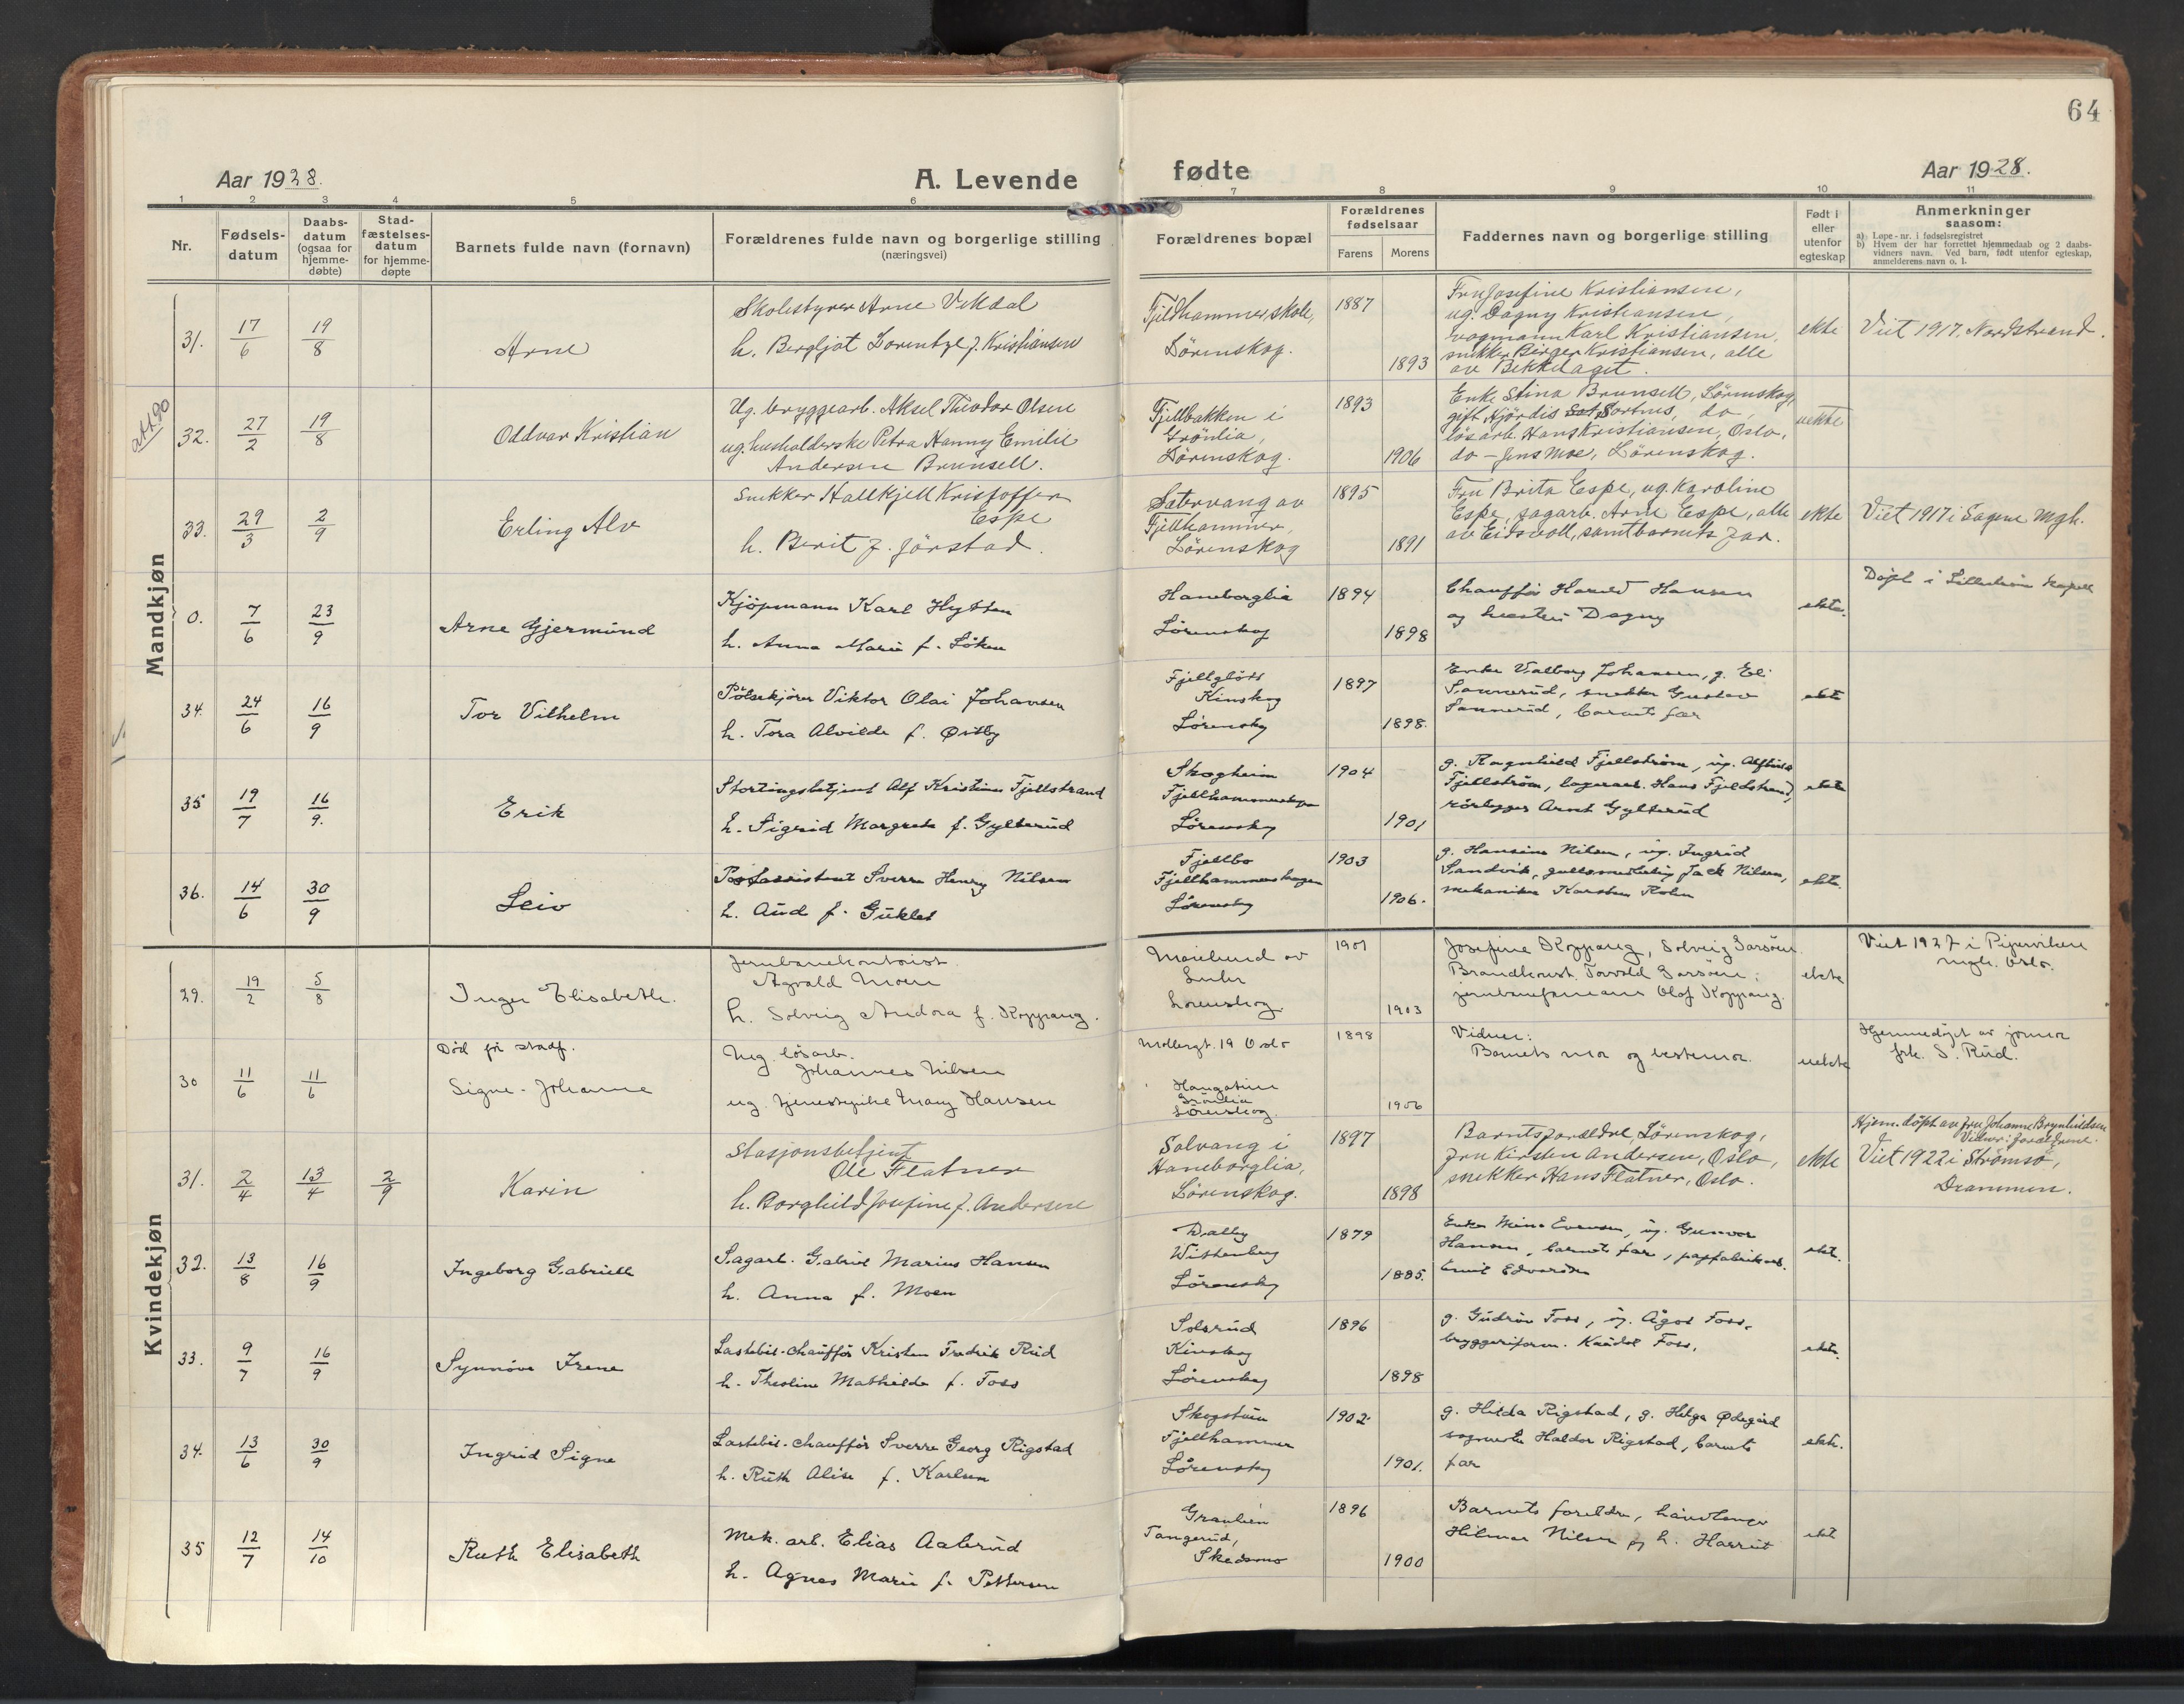 64
Aar 1928.
A. Levende
fødte
Aar 1928.
1 2 3 4 5 6 7 8 9 10 11
Nr.
Fødsels-
datum
Daabs-
datum
(ogsaa for
hjemme-
døbte)
Stad-
fæstelses-
datum
for hjemme-
døpte
Barnets fulde navn (fornavn)
Forældrenes fulde navn og borgerlige stilling
(næringsvei)
Forældrenes bopæl
Forældrenes
fødselsaar
Farens
Morens
Faddernes navn og borgerlige stilling
Født i
eller
utenfor
egteskap
Anmerkninger
saasom:
a) Løpe-nr. i fødselsregistret
b) Hvem der har forrettet hjemmedaab og 2 daabs-
vidners navn. Ved barn, født utenfor egteskap,
anmelderens navn o. l.
Mandkjøn
31. 17/6 19/8
Arne
Skolestyrer Arne Vikdal
h. Bergljot Lorentze f. Kristiansen
Fjeldhammer skole,
Lørenskog.
1887
1893
Fru Josefine Kristiansen,
ug. Dagny Kristiansen,
vogmann Karl Kristiansen,
snekker Birger Kristiansen, alle
av Bekkelaget.
ekte
Viet 1917. Nordstrand.
att 90
32. 27/2 19/8
Oddvar Kristian
Ug. bryggearb. Aksel Theodor Olsen
ug. husholderske Petra Hanny Emilie
Andersen Brunsell.
Fjellbakken i
Grönlia,
Lørenskog.
1893
1906
Enke Stina Brunsell, Lörenskog,
gift Hjördis Sortnes, do,
lösarb. Hans Kristiansen, Oslo,
do - Jens Moe, Lörenskog.
uekte
33. 29/3 2/9
Erling Alv
Snekker Hallkjell Kristoffer
Espe
h. Berit f. Jörstad.
Sätervang av
Fjellhammer,
Lörenskog
1895
1891
Fru Brita Espe, ug. Karoline
Espe, sagarb. Arne Espe, alle
av Eidsvoll, samt barnets far.
ekte
Viet 1917 i Sagene Mgh.
0. 7/6 23/9
Arne Gjermünd
Kjöpmann Karl Hytten
h. Anna Marie f. Löken
Haneborglia
Lörenskog
1894
1898
Chaufför Harald Hansen
og hustru Dagny
ekte.
Döpt i Lilleström kapell
34. 24/6 16/9
Tor Vilhelm
Pölsekjörer Viktor Olai Johansen
h. Tora Alvilde f. Østby
Fjellglött
Kinskog
Lörenskog
1897
1898.
Enke Valborg Johansen, g. Eli
Sannerüd, snekker Gustav
Sannerüd, barnets far
ekte
35 19/7 16/9.
Erik
Stortingsbetjent Alf Kristian Fjellstrand
h. Sigrid Margrete f. Gylterüd
Skogheim
Fjellhammerskogen
Lörenskog
1904
1901
g. Ragnhild Fjellström, ug. Alfhild
Fjellström, lagerarb. Hans Fjeldstrand,
rörlegger Arnt Gylterüd
ekte
36. 14/6 30/9
Leiv
Postassistent Sverre Henry Nilsen
h. Aüd f. Güklet
Fjellbo
Fjellhammerskogen
Lörenskog
1903
1906.
g. Hansine Nilsen, ug. Ingrid
Sandvik, gullsmedlærling Jack Nilsen,
mekaniker Karsten Rolén
ekte.
Kvindekjøn
29. 19/2 5/8
Inger Elisabeth.
Jernbanekontorist
Agvald Moen
h. Solveig Andora f. Koppang.
Marielund av
Lörenskog.
1901
1903
Josefine Koppang, Solveig Sarsöen
Brandkonst. Torvald Sarsöen:
Olaf Koppang.
ekte
Viet 1927 i Pipervikens
mgh. Oslo.
30 11/6 11/6
Död för stadf.
Signe-Johanne
Ug. lösarb.
Johannes Nilsen
ug. tjenestepike Mary Hansen
Möllergt. 19 Oslo
Haugstun
Grönlia
Lörenskog.
1898
1906
Vidner:
Barnets mor og bestemor.
uekte
Hjemmedöpt av jormor
frk. S. Rüd.
31. 2/4 13/4 2/9
Karin
Stasjonsbetjent
Ole Flatner
h. Borghild Josefine f. Andersen
Solvang i
Haneborglia,
Lörenskog.
1897
1898
Barnets forældre, Lörenskog,
fru Kirsten Andersen, Oslo,
snekker Hans Flatner, Oslo.
ekte
Hjem.döpt av fru Johanne Brynhildsen
Vidner: foreldrene.
Viet 1922 i Strömsö,
Drammen.
32. 13/8 16/9
Ingeborg Gabrielle
Sagarb. Gabriel Marius Hansen
h. Anna f. Moen
Dalby
Wittenberg
Lörenskog
1879
1885.
Enke Mina Evensen, ug. Gunvor
Hansen, barnets far, papfabrikarb.
Emil Edvardsen
ekt.
33. 9/7 16/9
Synnöve Irene
Lastebil-chaufför Kristen Fredrik Rüd
h. Theoline Mathilde f. Foss
Solerüd
Kinskog
Lörenskog
1896
1898
g. Güdrün Foss, ug. Ågot Foss,
bryggeriform. Kaüdol Foss,
ekte.
34. 13/6 30/9
Ingrid Signe
Lastebil-chaufför Sverre Georg Rigstad
h. Rüth Alise f. Karlsen
Skogstün
Fjellhammer
Lörenskog
1902.
1901.
g. Hilda Rigstad, g. Helga Ødegård
Haldor Rigstad, barnets
far
ekte.
35 12/7 14/10
Rüth Elisabeth
Mek. arb. Elias Aalerüd
h. Agnes Marie f. Pettersen
Granlien
Tangerüd,
Skedsmo
1896
1900
Barnets foreldre, håndlanger
Hilmar Nilsen og h. Harriet
ekt